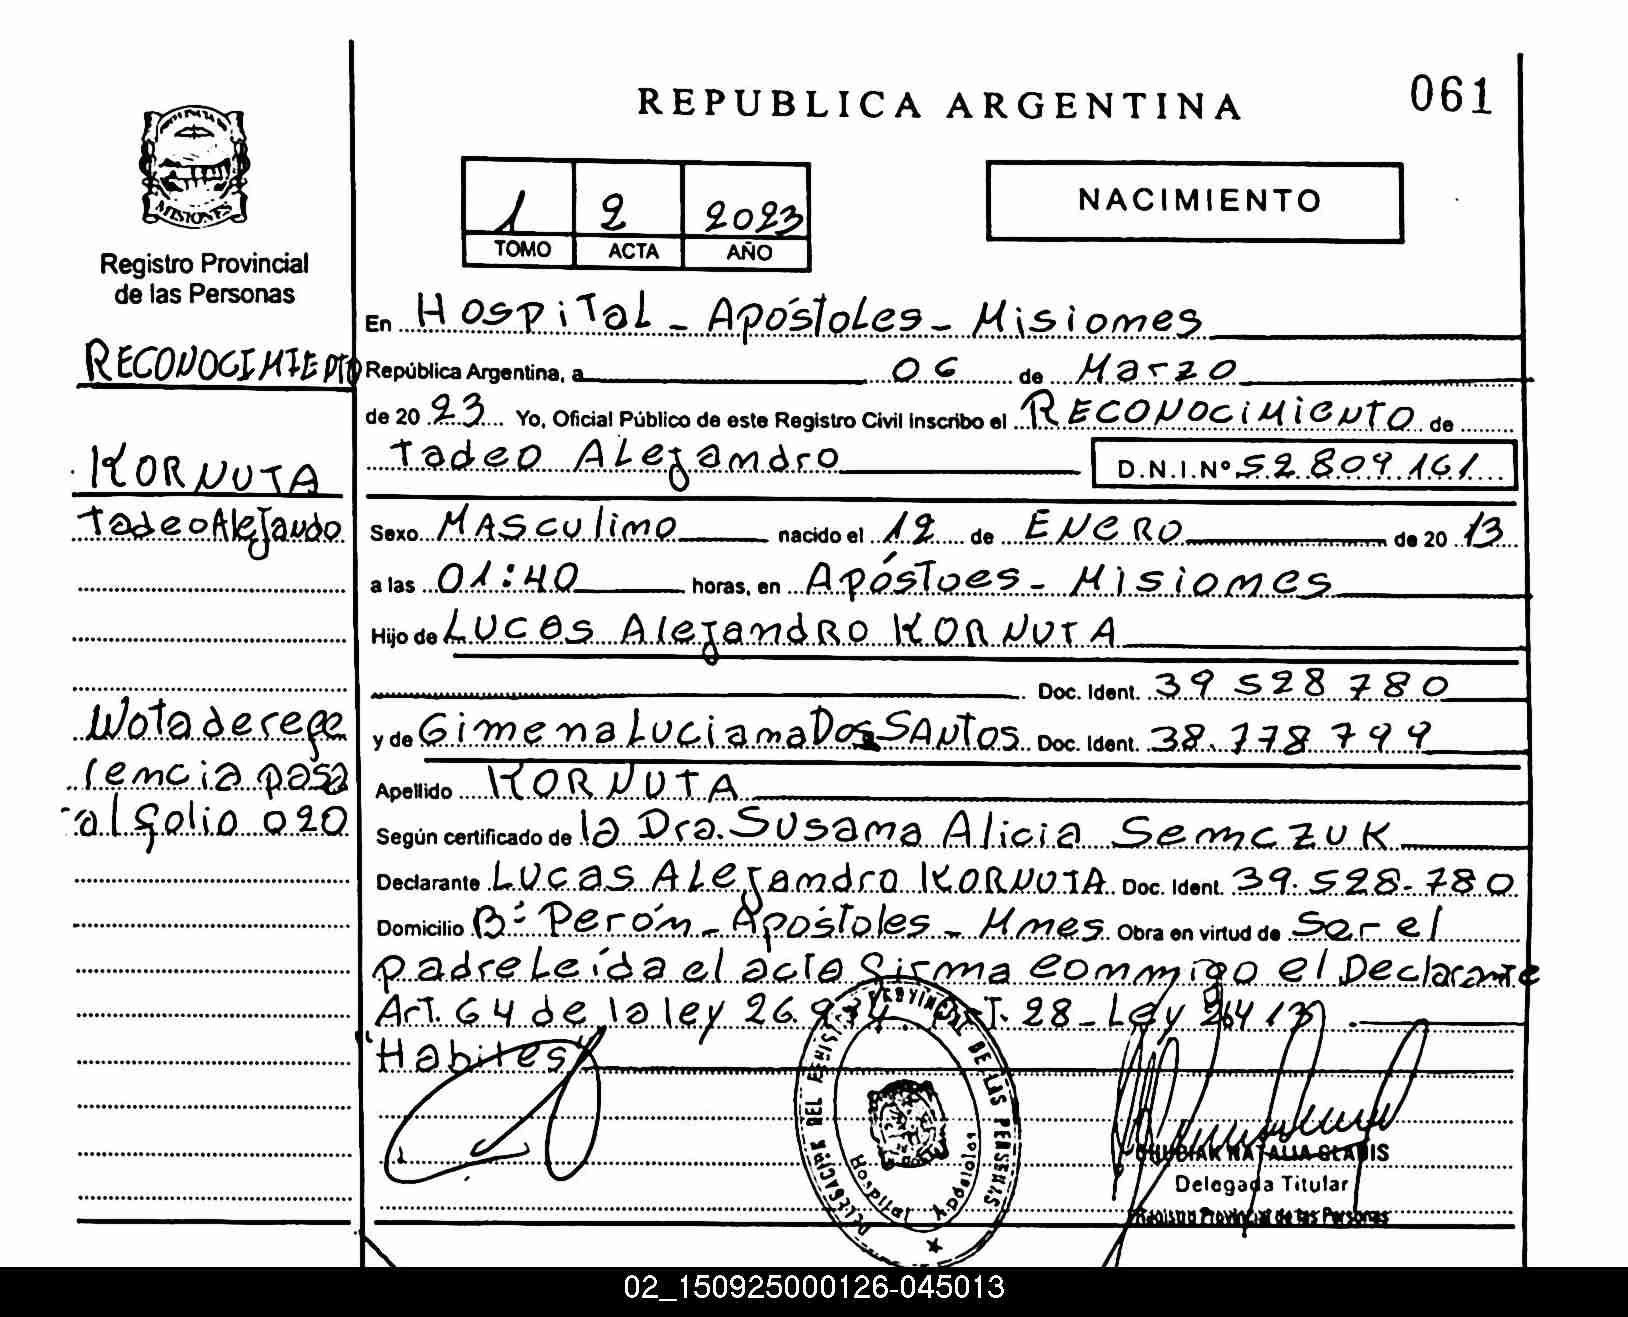 REPUBLICA ARGENTINA
061
MISIONES
Registro Provincial
de las Personas
1 2 2023
TOMO ACTA AÑO
NACIMIENTO
RECONOCIMIENTO
KORNUTA
Tadeo Alejandro
Nota de refe
rencia pasa
al folio 020
En Hospital - Apóstoles - Misiones
República Argentina, a 06 de Marzo
de 2023 Yo, Oficial Público de este Registro Civil inscribo el RECONOCIMIENTO de
Tadeo Alejandro D.N.I.Nº 52.809.161
Sexo MASculino nacido el 12 de ENERO de 2013
a las 01:40 horas, en Apóstoes - Misiones
Hijo de Lucas Alejandro KORNUTA
Doc. Ident. 39 528 780
y de Gimena Luciana Dos SAntos Doc. Ident. 38.778 799
Apellido KORNUTA
Según certificado de la Dra. Susana Alicia Semczuk
Declarante Lucas Alejandro KORNUTA Doc. Ident. 39.528.780
Domicilio Bº Perón - Apóstoles - Mnes Obra en virtud de Ser el
padre Leída el acta firma conmigo el Declarante
Art. 64 de la ley 26.994. ART. 28 - Ley 26413
"Habiles"
DELEGACION DEL REGISTRO PROVINCIAL DE LAS PERSONAS
Hospital Apóstoles
NATALIA GLADIS
Delegada Titular
Registro Provincial de las Personas
02_150925000126-045013